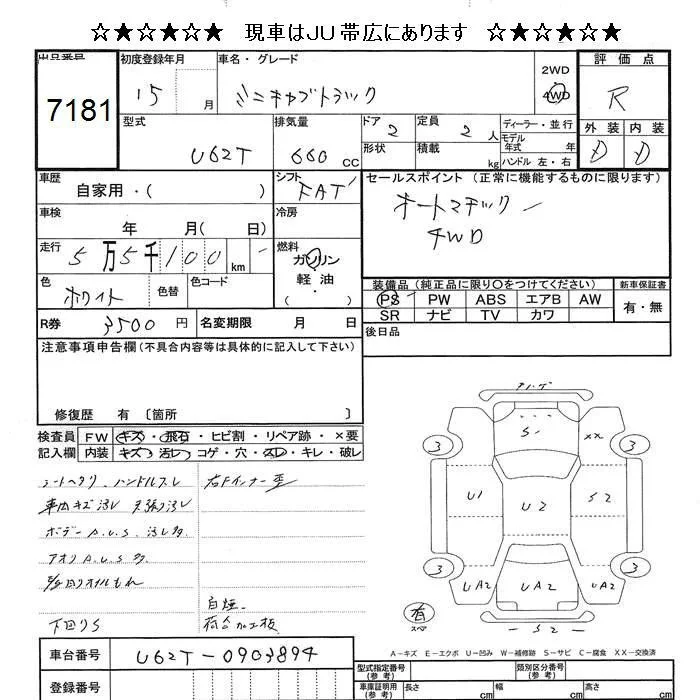 ☆★☆★☆★☆ 現車はJU帯広にあります ☆★☆★☆★☆
出品番号
7181
初度登録年月
15 月
車名・グレード
ミニキャブトラック
2WD
4WD
評価点
R
外装 内装
D D
型式
U62T
排気量
660 cc
ドア 2
形状
定員 2 人
積載 kg
ディーラー・並行
モデル年式 年
ハンドル 左・右
車歴
自家用・( )
シフト
FAT
セールスポイント (正常に機能するものに限ります)
オートマチック
4WD
車検
年 月( 日)
冷房
走行
5万5千100 km
燃料
ガソリン
軽油
( )
色
ホワイト
色替
色コード
装備品(純正品に限り〇をつけてください)
新車保証書
PS PW ABS エアB AW
有・無
SR ナビ TV カワ
R券
3500 円
名変期限 月 日
後日品
注意事項申告欄(不具合内容等は具体的に記入して下さい)
修復歴 有〔箇所 〕
検査員記入欄
FW キズ・飛石・ヒビ割・リペア跡・×要
内装 キズ・汚レ・コゲ・穴・スレ・キレ・破レ
シートヘタリ ハンドルスレ
右Fインナー歪
車内キズ汚レ 天張り汚レ
ボデーA.U.S 汚レ多
アオリA.U.S多
オイルもれ
下回りS
白煙
荷台加工板
S1
XX
3
3
U1
U2
S2
3
3
UA2
UA2
UA2
有
スペア
S2
A-キズ E-エクボ U-凹み W-補修跡 S-サビ C-腐食 XX-交換済
車台番号
U62T-0903894
登録番号
型式指定番号(参考)
類別区分番号(参考)
車庫証明用(参考)
長さ cm
幅 cm
高さ cm